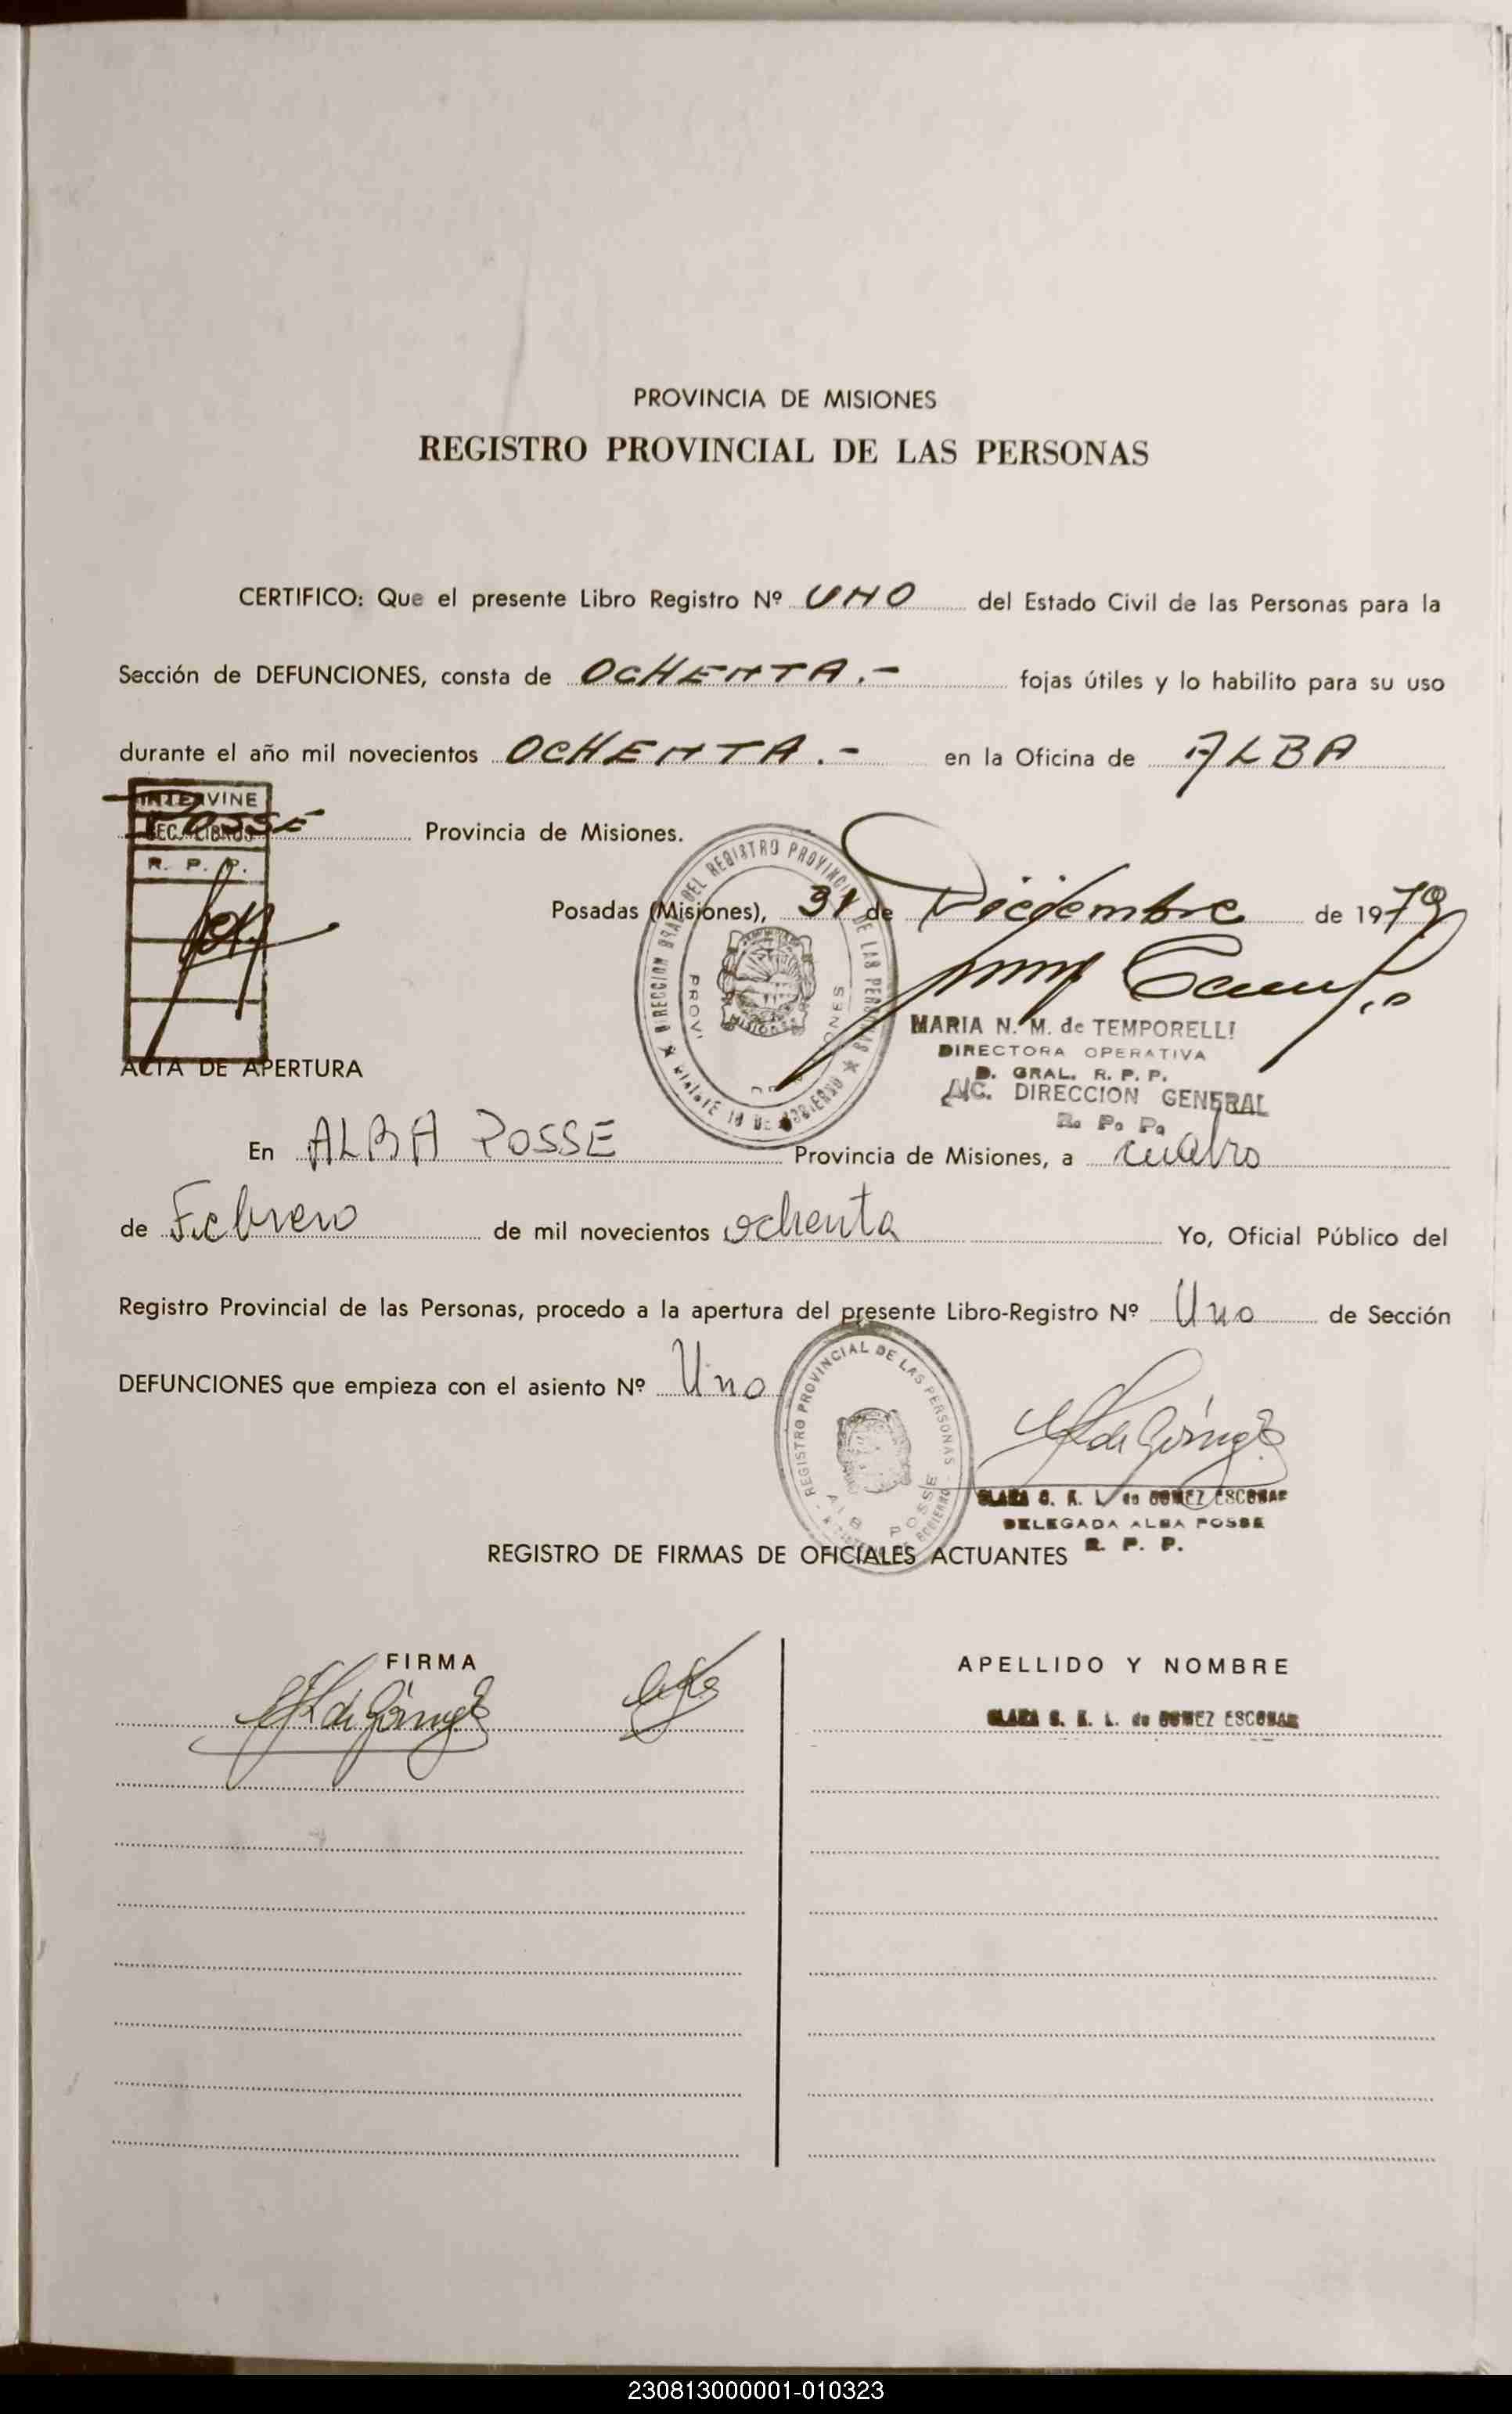 PROVINCIA DE MISIONES
REGISTRO PROVINCIAL DE LAS PERSONAS
CERTIFICO: Que el presente Libro Registro Nº UNO del Estado Civil de las Personas para la
Sección de DEFUNCIONES, consta de OCHENTA.- fojas útiles y lo habilito para su uso
durante el año mil novecientos OCHENTA.- en la Oficina de ALBA
POSSE Provincia de Misiones.
INTERVINE
SEC. LIBROS
R. P. P.
DIRECCION GRAL. DEL REGISTRO PROVINCIAL DE LAS PERSONAS
Posadas (Misiones), 31 de Diciembre de 1979
MARIA N. M. de TEMPORELLI
DIRECTORA OPERATIVA
D. GRAL. R. P. P.
A/C. DIRECCION GENERAL
R. P. P.
ACTA DE APERTURA
En ALBA POSSE Provincia de Misiones, a cuatro
de Febrero de mil novecientos ochenta Yo, Oficial Público del
Registro Provincial de las Personas, procedo a la apertura del presente Libro-Registro Nº Uno de Sección
DEFUNCIONES que empieza con el asiento Nº Uno
REGISTRO PROVINCIAL DE LAS PERSONAS
ALBA POSSE
de GOMEZ ESCOBAR
DELEGADA ALBA POSSE
R. P. P.
REGISTRO DE FIRMAS DE OFICIALES ACTUANTES
FIRMA
APELLIDO Y NOMBRE
de GOMEZ ESCOBAR
230813000001-010323